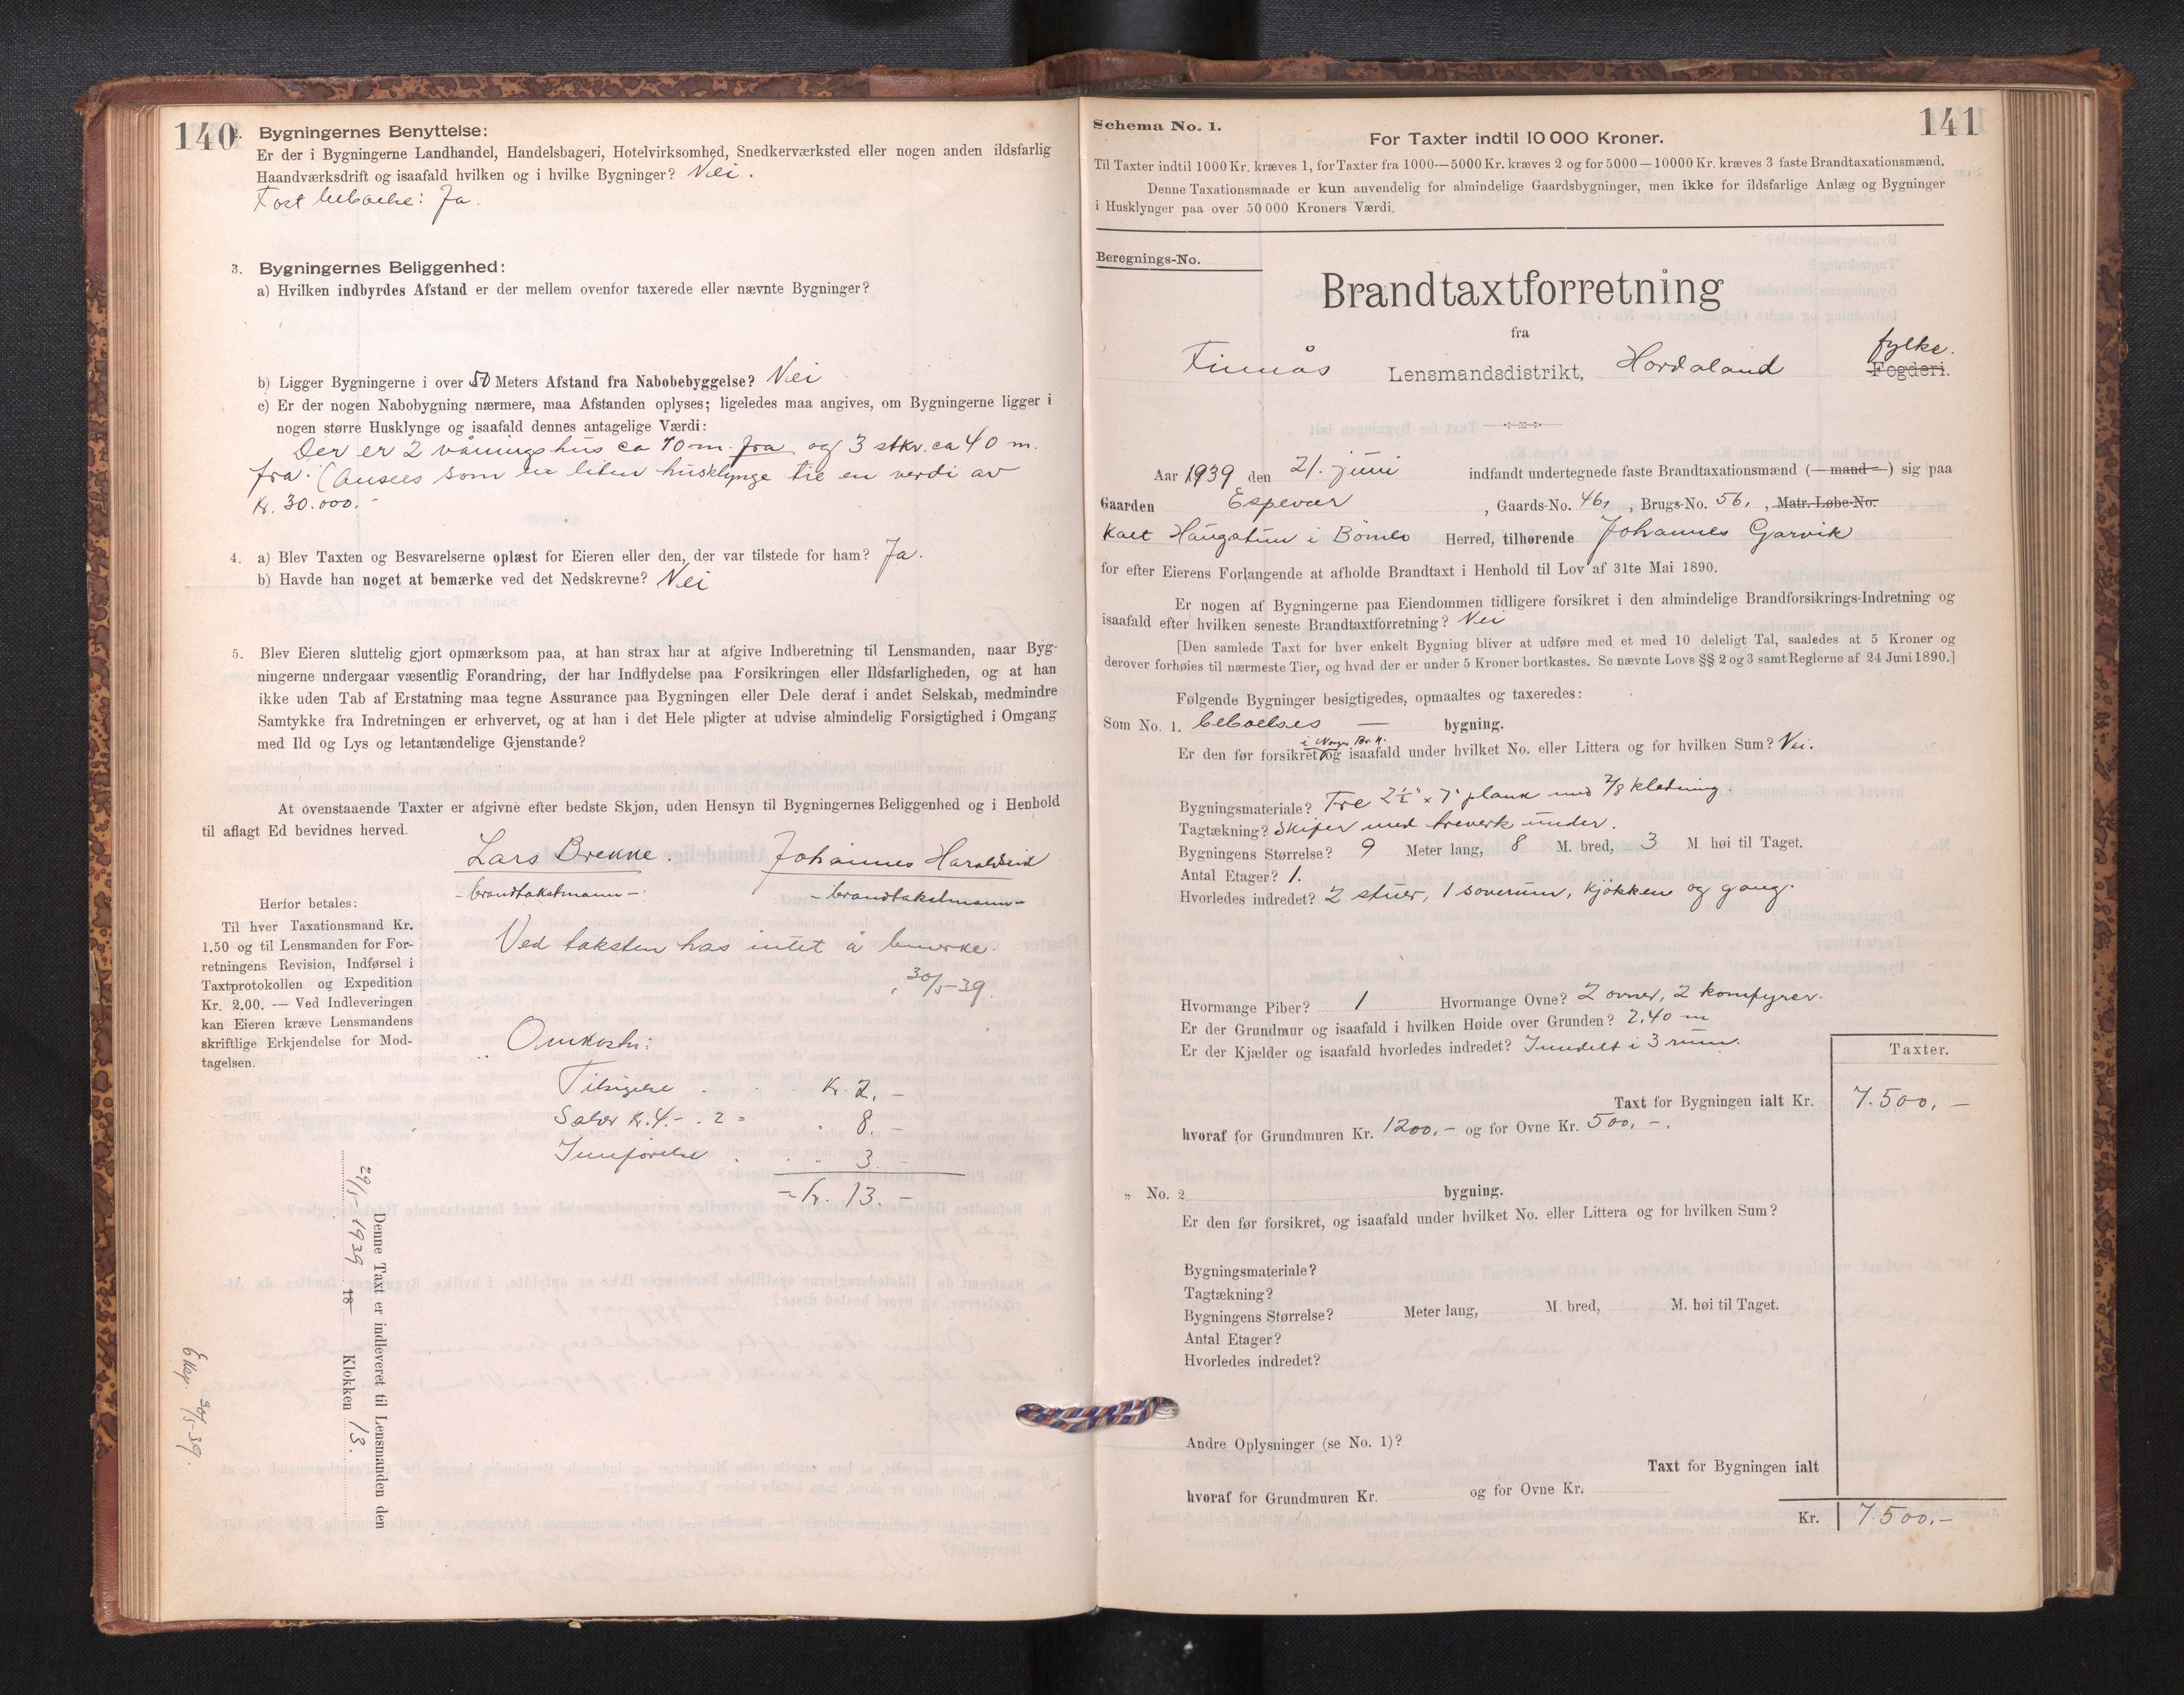 140
2. Bygningernes Benyttelse:
Er der i Bygningerne Landhandel, Handelsbageri, Hotelvirksomhed, Snedkerværksted eller nogen anden ildsfarlig
Haandværksdrift og isaafald hvilken og i hvilke Bygninger? Nei.
Fast beboelse: Ja.
3. Bygningernes Beliggenhed:
a) Hvilken indbyrdes Afstand er der mellem ovenfor taxerede eller nævnte Bygninger?
b) Ligger Bygningerne i over 50 Meters Afstand fra Nabobebyggelse? Nei
c) Er der nogen Nabobygning nærmere, maa Afstanden oplyses; ligeledes maa angives, om Bygningerne ligger i
nogen større Husklynge og isaafald dennes antagelige Værdi:
Der er 2 våningshus ca 10 m. fra og 3 stkr. ca 40 m.
fra. (Ansees som en liten husklynge til en verdi av
Kr. 30.000.-
4. a) Blev Taxten og Besvarelserne oplæst for Eieren eller den, der var tilstede for ham? Ja.
b) Havde han noget at bemærke ved det Nedskrevne? Nei
5. Blev Eieren sluttelig gjort opmærksom paa, at han strax har at afgive Indberetning til Lensmanden, naar Byg-
ningerne undergaar væsentlig Forandring, der har Indflydelse paa Forsikringen eller Ildsfarligheden, og at han
ikke uden Tab af Erstatning maa tegne Assurance paa Bygningen eller Dele deraf i andet Selskab, medmindre
Samtykke fra Indretningen er erhvervet, og at han i det Hele pligter at udvise almindelig Forsigtighed i Omgang
med Ild og Lys og letantændelige Gjenstande?
At ovenstaaende Taxter er afgivne efter bedste Skjøn, uden Hensyn til Bygningernes Beliggenhed og i Henhold
til aflagt Ed bevidnes herved.
Lars Brekke. Johannes Haraldseid
- brandtakstmann - - brandtakstmann -
Herfor betales:
Til hver Taxationsmand Kr.
1.50 og til Lensmanden for For-
retningens Revision, Indførsel i
Taxtprotokollen og Expedition
Kr. 2.00. — Ved Indleveringen
kan Eieren kræve Lensmandens
skriftlige Erkjendelse for Mod-
tagelsen.
Ved taksten has intet å bemerke.
30/5-39.
Omkostn:
Tilsigelse . . . Kr. 2,-
Salær Kr. 4.- . 2 = . 8.-
Innførelse . . . 3.-
- Kr. 13.-
Denne Taxt er indleveret til Lensmanden den
29/5-1939 18 Klokken 13.
30/5-39.
141
Schema No. 1.
For Taxter indtil 10 000 Kroner.
Til Taxter indtil 1000 Kr. kræves 1, for Taxter fra 1000—5000 Kr. kræves 2 og for 5000—10000 Kr. kræves 3 faste Brandtaxationsmænd.
Denne Taxationsmaade er kun anvendelig for almindelige Gaardsbygninger, men ikke for ildsfarlige Anlæg og Bygninger
i Husklynger paa over 50 000 Kroners Værdi.
Beregnings-No.
Brandtaxtforretning
fra
Finnås Lensmandsdistrikt, Hordaland fylke. Fogderi.
Aar 1939 den 21. juni indfandt undertegnede faste Brandtaxationsmænd (—mand—) sig paa
Gaarden Espevær, Gaards-No. 46, , Brugs-No. 56. , Matr.-Løbe-No.
kalt Haugatun i Bømlo Herred, tilhørende Johannes Garvik
for efter Eierens Forlangende at afholde Brandtaxt i Henhold til Lov af 31te Mai 1890.
Er nogen af Bygningerne paa Eiendommen tidligere forsikret i den almindelige Brandforsikrings-Indretning og
isaafald efter hvilken seneste Brandtaxtforretning? Nei
[Den samlede Taxt for hver enkelt Bygning bliver at udføre med et med 10 deleligt Tal, saaledes at 5 Kroner og
derover forhøies til nærmeste Tier, og hvad der er under 5 Kroner bortkastes. Se nævnte Lovs §§ 2 og 3 samt Reglerne af 24 Juni 1890.]
Følgende Bygninger besigtigedes, opmaaltes og taxeredes:
Som No. 1. beboelses — bygning.
i Norges Br. K.
Er den før forsikret, og isaafald under hvilket No. eller Littera og for hvilken Sum? Nei.
Bygningsmateriale? Tre 2½" x 7" plank med 7/8 kledning.
Tagtækning? Skifer med treverk under.
Bygningens Størrelse? 9 Meter lang, 8 M. bred, 3 M. høi til Taget.
Antal Etager? 1.
Hvorledes indredet? 2 stuer, 1 soverum, kjøkken og gang.
Hvormange Piber? 1 Hvormange Ovne? 2 ovner, 2 komfyrer.
Er der Grundmur og isaafald i hvilken Høide over Grunden? 2,40 m
Er der Kjælder og isaafald hvorledes indredet? Inndelt i 3 rum.
Taxter.
Taxt for Bygningen ialt Kr. 7.500,-
hvoraf for Grundmuren Kr. 1200,- og for Ovne Kr. 500,-.
„ No. 2 bygning.
Er den før forsikret, og isaafald under hvilket No. eller Littera og for hvilken Sum?
Bygningsmateriale?
Tagtækning?
Bygningens Størrelse? Meter lang, M. bred, M. høi til Taget.
Antal Etager?
Hvorledes indredet?
Andre Oplysninger (se No. 1)?
Taxt for Bygningen ialt
hvoraf for Grundmuren Kr. og for Ovne Kr.
Kr. 7.500,-